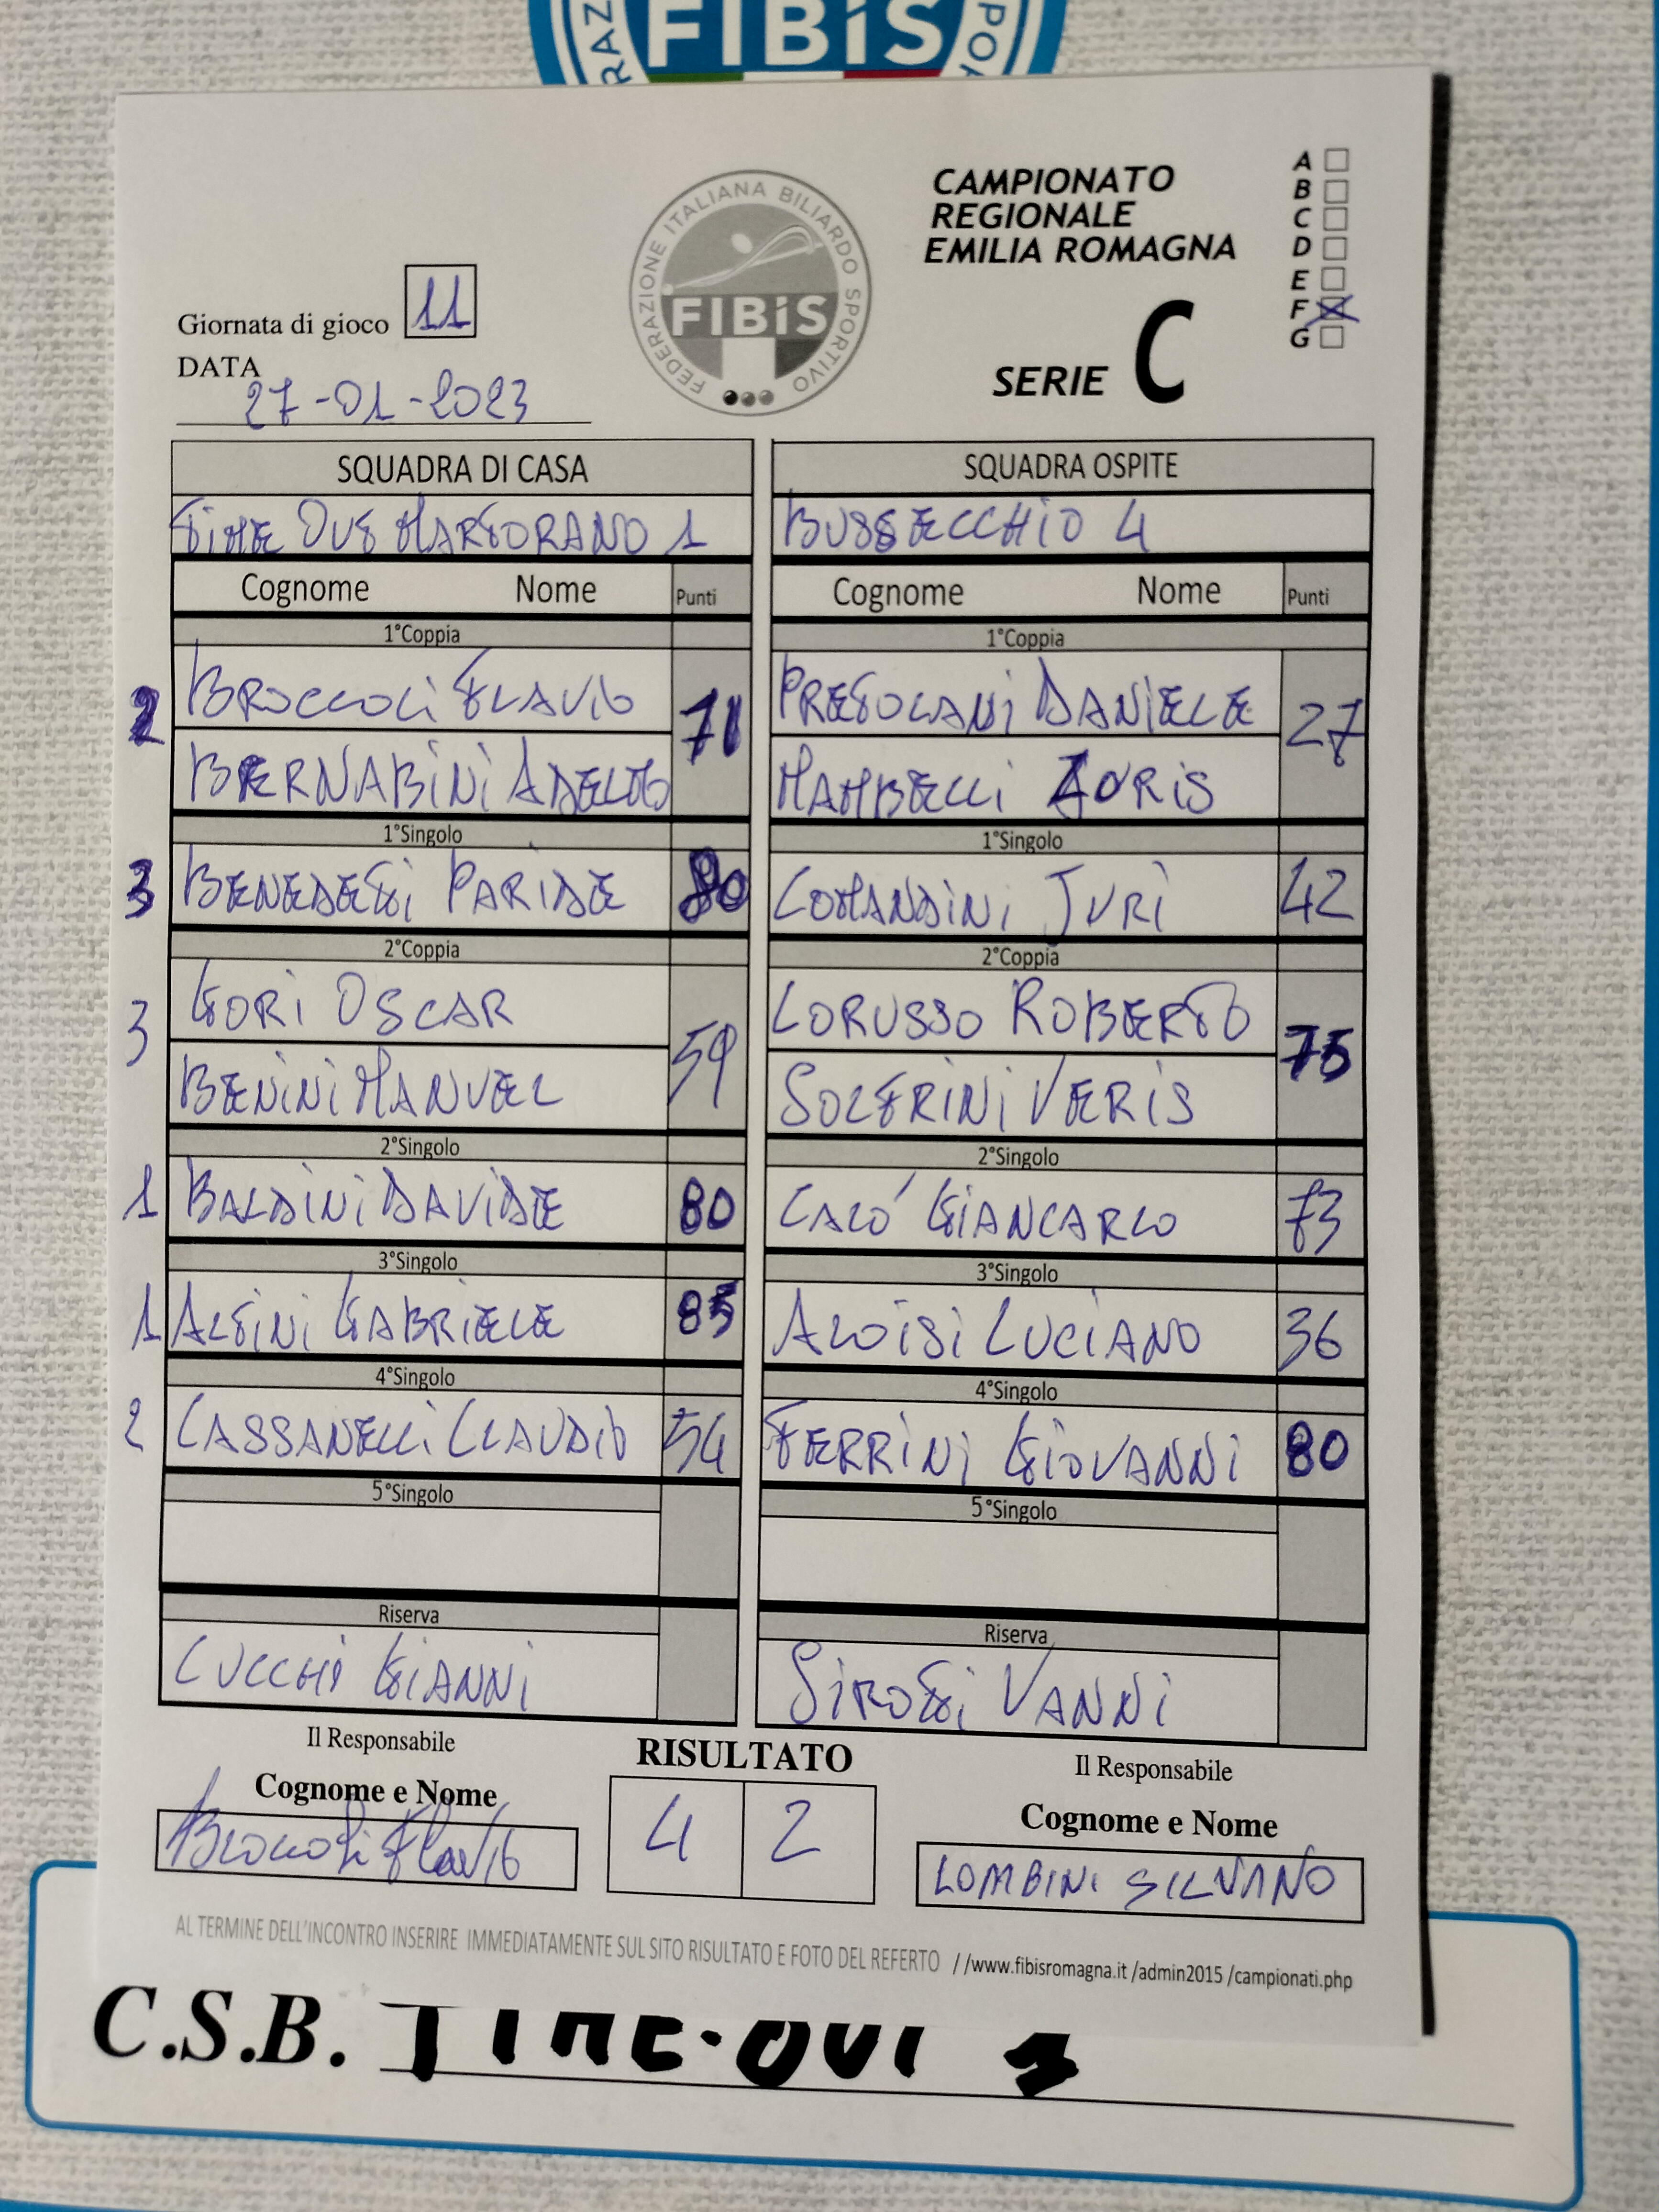 FIBiS
CAMPIONATO
REGIONALE
EMILIA ROMAGNA
SERIE C
A
B
C
D
E
F
G
FEDERAZIONE ITALIANA BILIARDO SPORTIVO
FIBiS
Giornata di gioco 11
DATA
27-01-2023
SQUADRA DI CASA SQUADRA OSPITE
TIME OUT MARTORANO 1 BUSSECCHIO 4
Cognome Nome Punti Cognome Nome Punti
1°Coppia 1°Coppia
2 BROCCOLI FLAVIO 71 PRESOLANI DANIELE 27
BERNABINI ADELMO MAMBELLI LORIS
1°Singolo 1°Singolo
3 BENEDETTI PARIDE 80 COMANDINI JURI 42
2°Coppia 2°Coppia
3 GORI OSCAR 59 LORUSSO ROBERTO 75
BENINI MANUEL SOLFRINI VERIS
2°Singolo 2°Singolo
1 BALDINI DAVIDE 80 CALO' GIANCARLO 73
3°Singolo 3°Singolo
1 ALFINI GABRIELE 85 ALOISI LUCIANO 36
4°Singolo 4°Singolo
2 CASSANELLI CLAUDIO 54 FERRINI GIOVANNI 80
5°Singolo 5°Singolo
Riserva Riserva
CUCCHI GIANNI SIROTTI VANNI
Il Responsabile RISULTATO Il Responsabile
Cognome e Nome 4 2 Cognome e Nome
Broccoli Flavio LOMBINI SILVANO
AL TERMINE DELL'INCONTRO INSERIRE IMMEDIATAMENTE SUL SITO RISULTATO E FOTO DEL REFERTO //www.fibisromagna.it /admin2015 /campionati.php
C.S.B. TIME-OUT 1